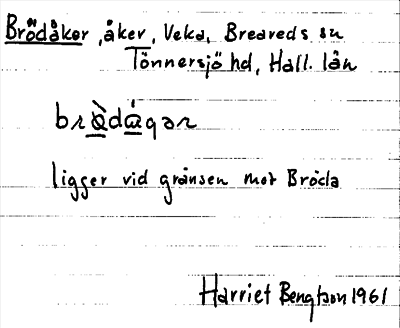 Brödåker, åker, Veka, Breareds sn
Tönnersjö hd, Hall. län
brø̀dágər
ligger vid gränsen mot Bröda
Harriet Bengtson 1961